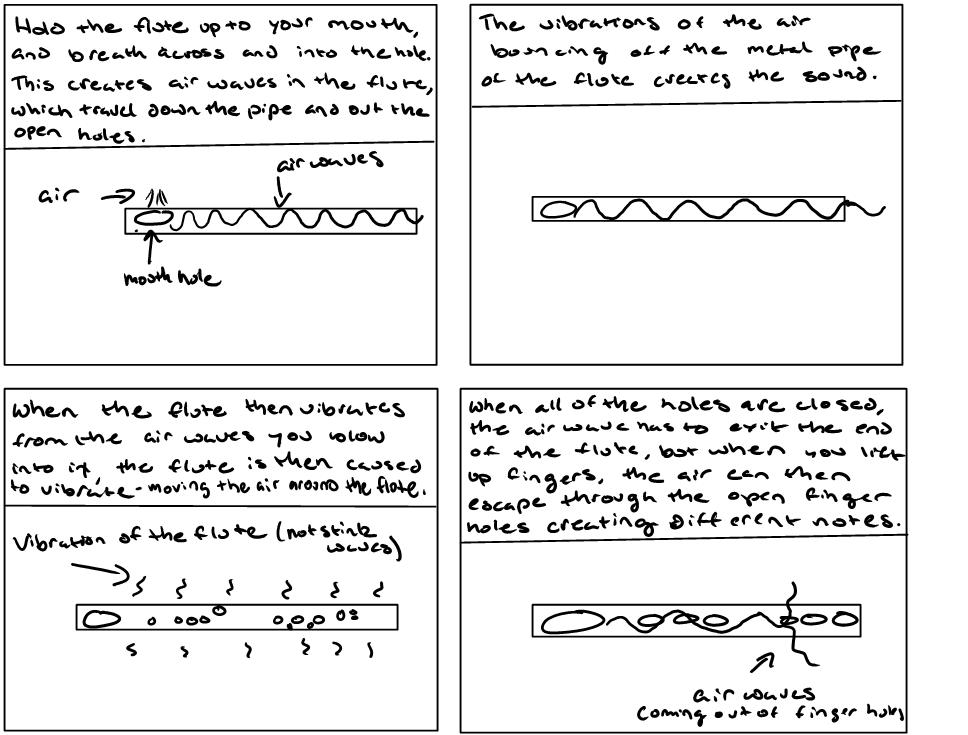 Hold the flute up to your mouth,
and breath across and into the hole.
This creates air waves in the flute,
which travel down the pipe and out the
open holes.
air waves
air
mouth hole
The vibrations of the air
bouncing off the metal pipe
of the flute creates the sound.
when the flute then vibrates
from the air waves you blow
into it, the flute is then caused
to vibrate - moving the air around the flute.
Vibration of the flute (not stink
waves)
when all of the holes are closed,
the air wave has to exit the end
of the flute, but when you lift
up fingers, the air can then
escape through the open finger
holes creating different notes.
air waves
coming out of finger holes